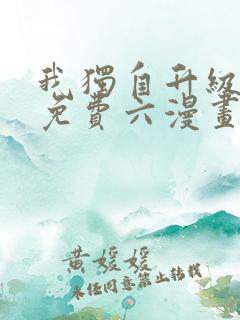 我獨自升級
免費六漫畫
黄媛媛
未經同意禁止轉載